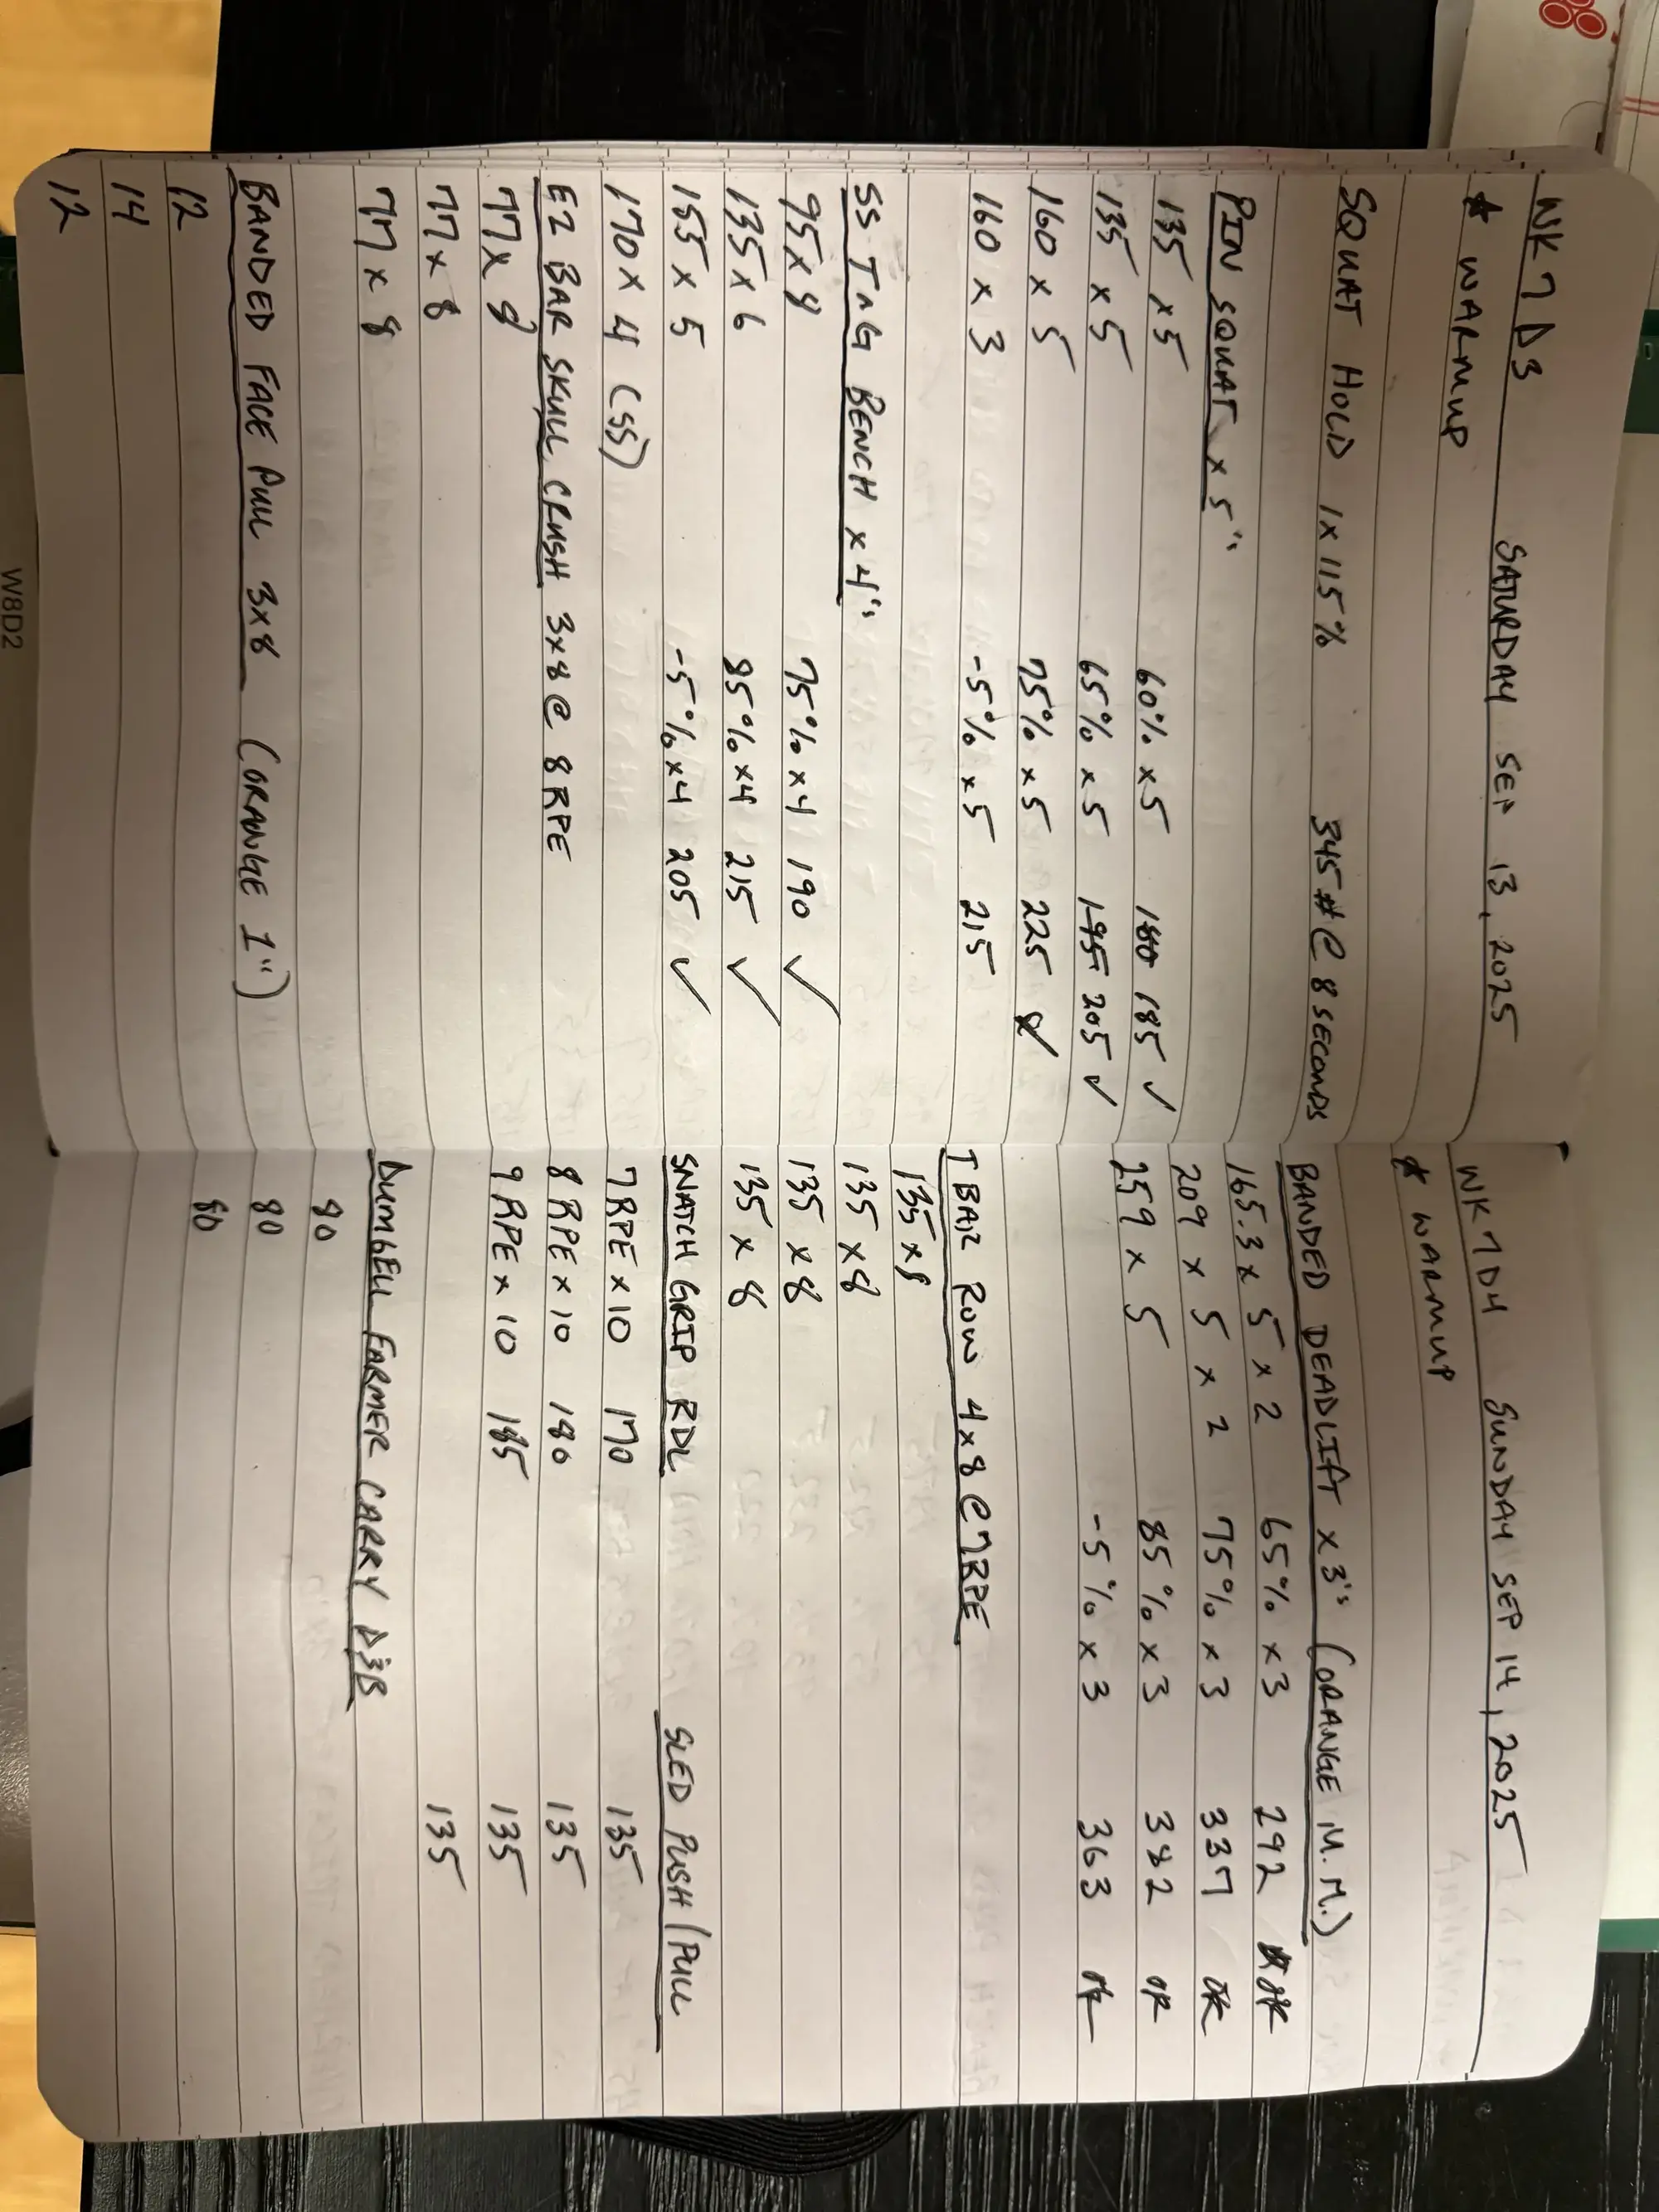 WK 7 D3 SATURDAY SEP 13, 2025
* WARMUP
SQUAT HOLD 1x115% 345# @ 8 SECONDS
PIN SQUAT x 5's
135 x5 60% x5 180 185 ✓
135 x5 65% x5 195 205 ✓
160 x 5 75% x5 225 ✓
160 x 3 -5% x5 215
SS TnG BENCH x 4's
95x8 75% x4 190 ✓
135x6 85% x4 215 ✓
155 x 5 -5% x4 205 ✓
170x 4 (SS)
EZ BAR SKULL CRUSH 3x8 @ 8 RPE
77x 8
77 x 8
77 x 8
BANDED FACE PULL 3x8 (ORANGE 1")
12
14
12
WK 7 D4 SUNDAY SEP 14, 2025
* WARMUP
BANDED DEADLIFT x 3's (ORANGE M.M.)
165.3x 5 x 2 65% x3 292 OK
209 x 5 x 2 75% x 3 337 OK
259 x 5 85% x 3 382 OK
-5% x 3 363
T BAR ROW 4x8 @ 7RPE
135 x8
135 x8
135 x 8
135 x 8
SNATCH GRIP RDL SLED PUSH/PULL
7 RPE x 10 170 135
8 RPE x 10 180 135
9 RPE x 10 185 135
135
DUMBELL FARMER CARRY D3B
80
80
80
W8D2